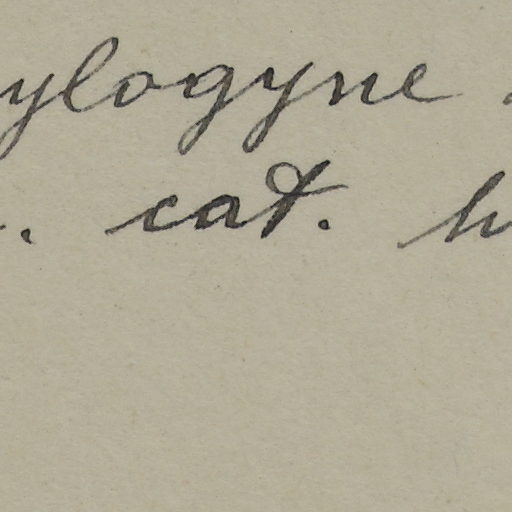 ylogyne
cat. h